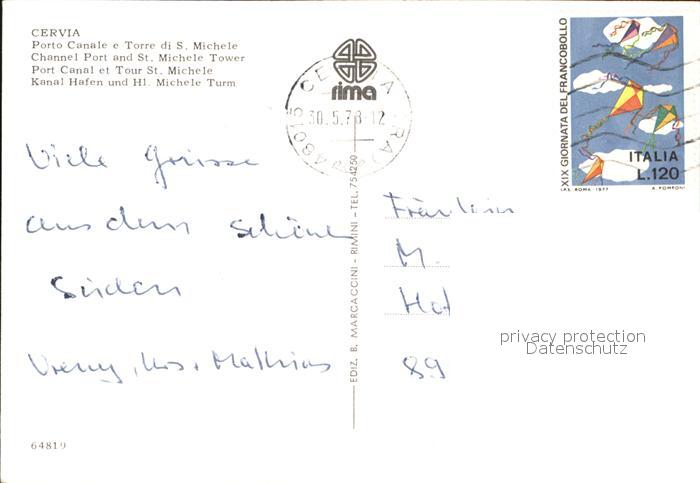 CERVIA
Porto Canale e Torre di S. Michele
Channel Port and St. Michele Tower
Port Canal et Tour St. Michele
Kanal Hafen und Hl. Michele Turm
rima
48015 CERVIA (RA)
30.5.78-12
XIX GIORNATA DEL FRANCOBOLLO
ITALIA
L.120
I.P.S. ROMA 1977
A. POMPONI
Viele Grüsse
aus dem schönen
Süden
Vreny, Mathias
EDIZ. B. MARCACCINI - RIMINI - TEL. 754250
Fräulein
M.
Hof
89
privacy protection
Datenschutz
64819